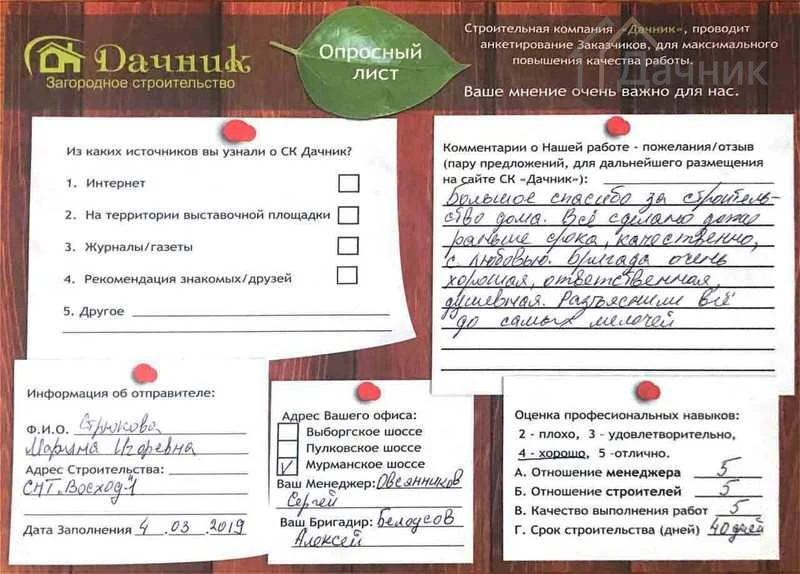 Дачник
Загородное строительство
Опросный
лист
Строительная компания «Дачник», проводит
анкетирование Заказчиков, для максимального
повышения качества работы.
Ваше мнение очень важно для нас.
Дачник
Из каких источников вы узнали о СК Дачник?
1. Интернет
2. На территории выставочной площадки
3. Журналы/газеты
4. Рекомендация знакомых/друзей
5. Другое
Комментарии о Нашей работе - пожелания/отзыв
(пару предложений, для дальнейшего размещения
на сайте СК «Дачник»):
Большое спасибо за строитель-
ство дома. Всё сделано даже
раньше срока, качественно,
с любовью. Бригада очень
хорошая, ответственная,
душевная. Разъяснили всё
до самых мелочей
Информация об отправителе:
Ф.И.О. Стрюкова
Марьяна Игоревна
Адрес Строительства:
СНТ "Восход-1"
Дата Заполнения 4 .03 .2019
Адрес Вашего офиса:
Выборгское шоссе
Пулковское шоссе
V Мурманское шоссе
Ваш Менеджер: Овсянников
Сергей
Ваш Бригадир: Белоусов
Алексей
Оценка профессиональных навыков:
2 - плохо, 3 - удовлетворительно,
4 - хорошо, 5 -отлично.
А. Отношение менеджера 5
Б. Отношение строителей 5
В. Качество выполнения работ 5
Г. Срок строительства (дней) 40 дней